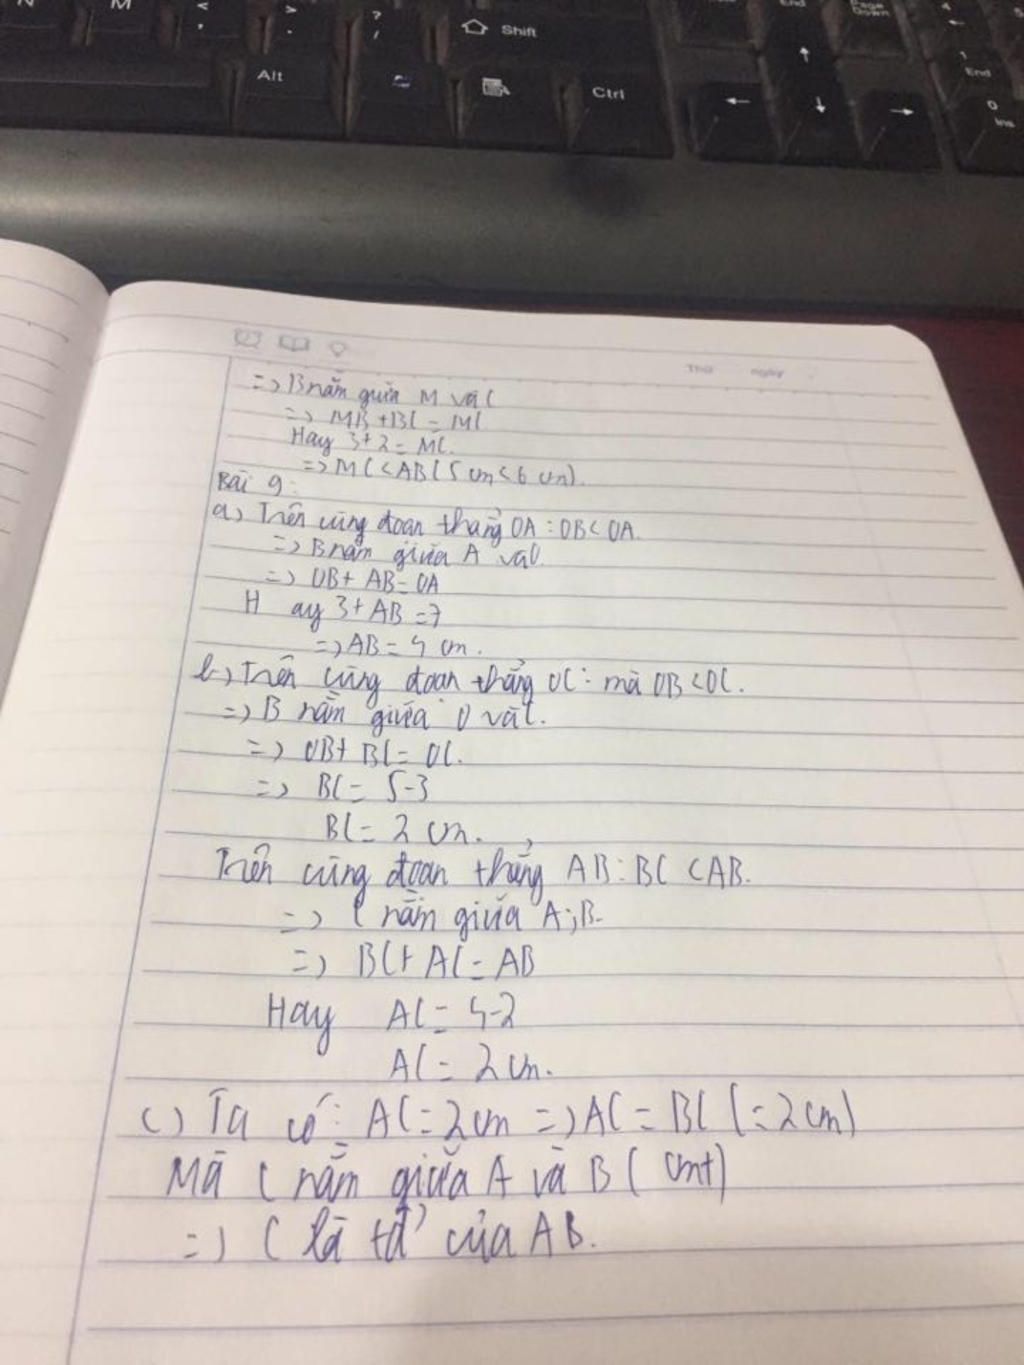 N M < , > . ? / Shift End Page Down 4
Alt Ctrl 1 End 0 Ins
Thứ ngày
=> B nằm giữa M và C
=> MB + BC = MC
Hay 3+2 = MC.
=> MC < AB (5 cm < 6 cm).
Bài 9:
a) Trên cùng đoạn thẳng OA : OB < OA.
=> B nằm giữa A và O.
=> OB + AB = OA
Hay 3 + AB = 7
=> AB = 4 cm.
b) Trên cùng đoạn thẳng OC : mà OB < OC.
=> B nằm giữa O và C.
=> OB + BC = OC.
=> BC = 5-3
BC = 2 cm.
Trên cùng đoạn thẳng AB : BC < AB.
=> C nằm giữa A; B.
=> BC + AC = AB
Hay AC = 4-2
AC = 2 cm.
c) Ta có : AC = 2cm => AC = BC (= 2cm)
Mà C nằm giữa A và B (cmt)
=> C là tđ' của AB.